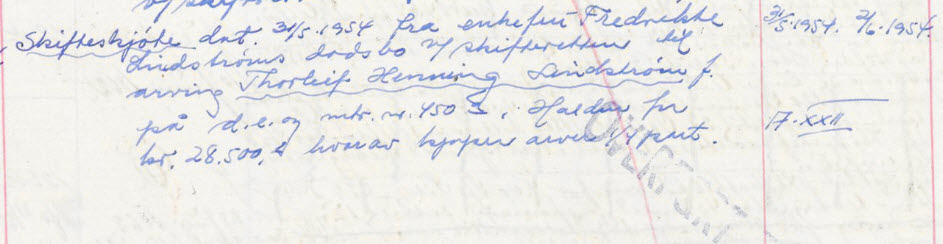 Skifteskjøte dat. 31/5.1954 fra enkefru Fredrikke 31/5.1954. 2/6.1954.
Lindströms dødsbo v/skifteretten til
arving Thorleif Henning Lindström f.
på d.e.og mtr.nr. 450 i Halden for 17.XXII
kr. 28.500,- hvorav kjøper arver 1/4 part.
OVERFØRT